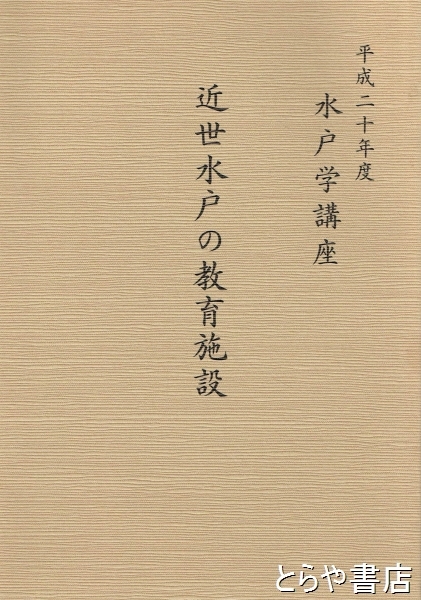 平成二十年度
水戸学講座
近世水戸の教育施設
とらや書店